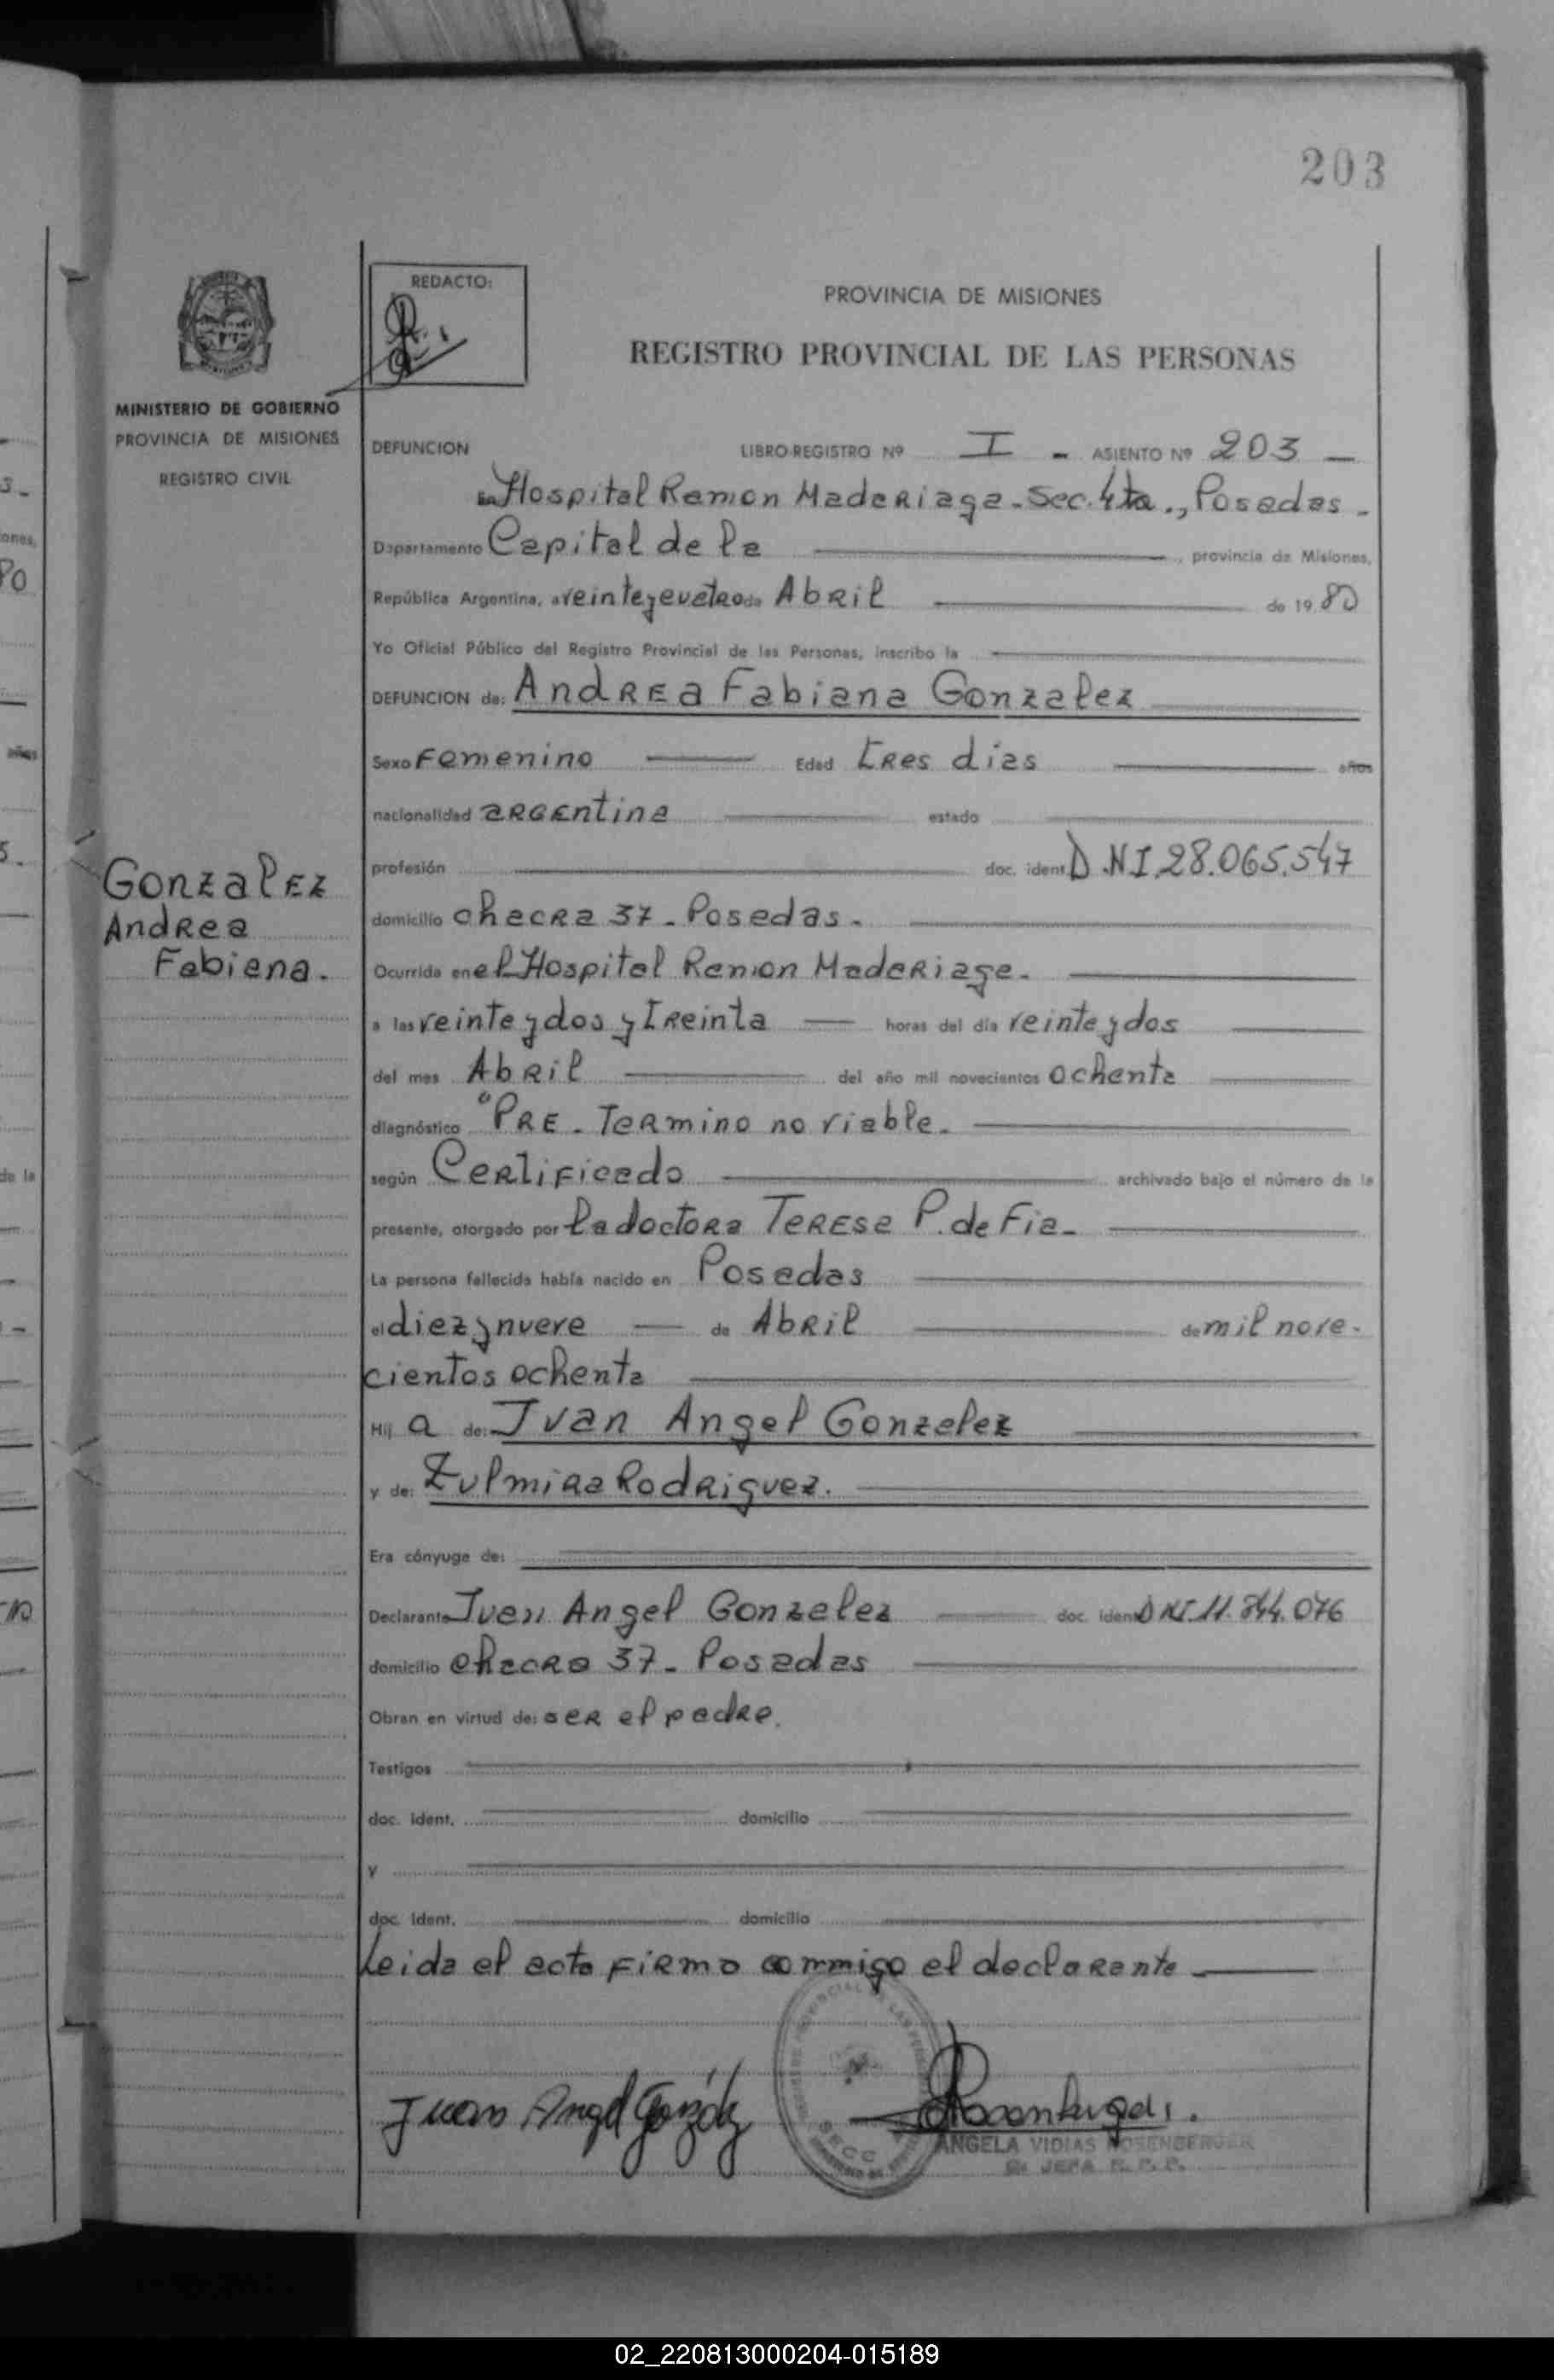 203
REDACTO:
PROVINCIA DE MISIONES
REGISTRO PROVINCIAL DE LAS PERSONAS
MINISTERIO DE GOBIERNO
PROVINCIA DE MISIONES
REGISTRO CIVIL
DEFUNCION LIBRO-REGISTRO Nº I - ASIENTO Nº 203
En Hospital Ramon Madariaga - Sec. 4ta., Posadas -
Departamento Capital de la , provincia de Misiones,
República Argentina, a veinteycuatro de Abril de 1980
Yo Oficial Público del Registro Provincial de las Personas, inscribo la
DEFUNCION de: Andrea Fabiana Gonzalez
Sexo Femenino Edad tres dias años
nacionalidad argentina estado
Gonzalez
Andrea
Fabiana.
profesión doc. ident. D.N.I. 28.065.547
domicilio chacra 37 - Posadas -
Ocurrida en el Hospital Ramon Madariaga -
a las veinte y dos y treinta horas del día veinte y dos
del mes Abril del año mil novecientos ochenta
diagnóstico "PRE - Termino no viable -
según Certificado archivado bajo el número de la
presente, otorgado por la doctora Teresa P. de Fia -
La persona fallecida había nacido en Posadas
el diez y nueve de Abril de mil nove-
cientos ochenta
Hij a de: Juan Angel Gonzalez
y de: Zulmira Rodriguez.
Era cónyuge de:
Declarante Juan Angel Gonzalez doc. ident. DNI. 11.844.076
domicilio chacra 37 - Posadas
Obran en virtud de: ser el padre.
Testigos
doc. ident. domicilio
y
doc. ident. domicilio
Leida el acta firmo conmigo el declarante
Juan Angel González
ANGELA VIDIAS ROSENBERGER
JEFA R. P. P.
02_220813000204-015189